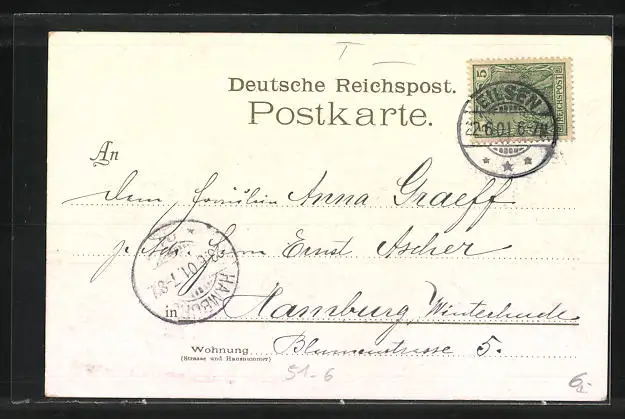 Deutsche Reichspost.
Postkarte.
5
REICHSPOST
EILSEN
22.6.01.6-7N.
An
dem Fräulein Anna Graeff
p. Adr. Herrn Ernst Ascher
HAMBURG
.6.01.7-8
in Hamburg, Winterhude
Wohnung Blumenstrasse 5.
(Strasse und Hausnummer)
51-6
6,-